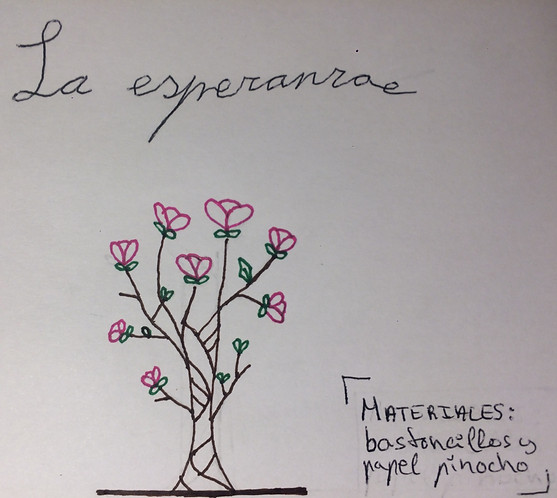 La esperanza
MATERIALES:
bastoncillos y
papel pinocho